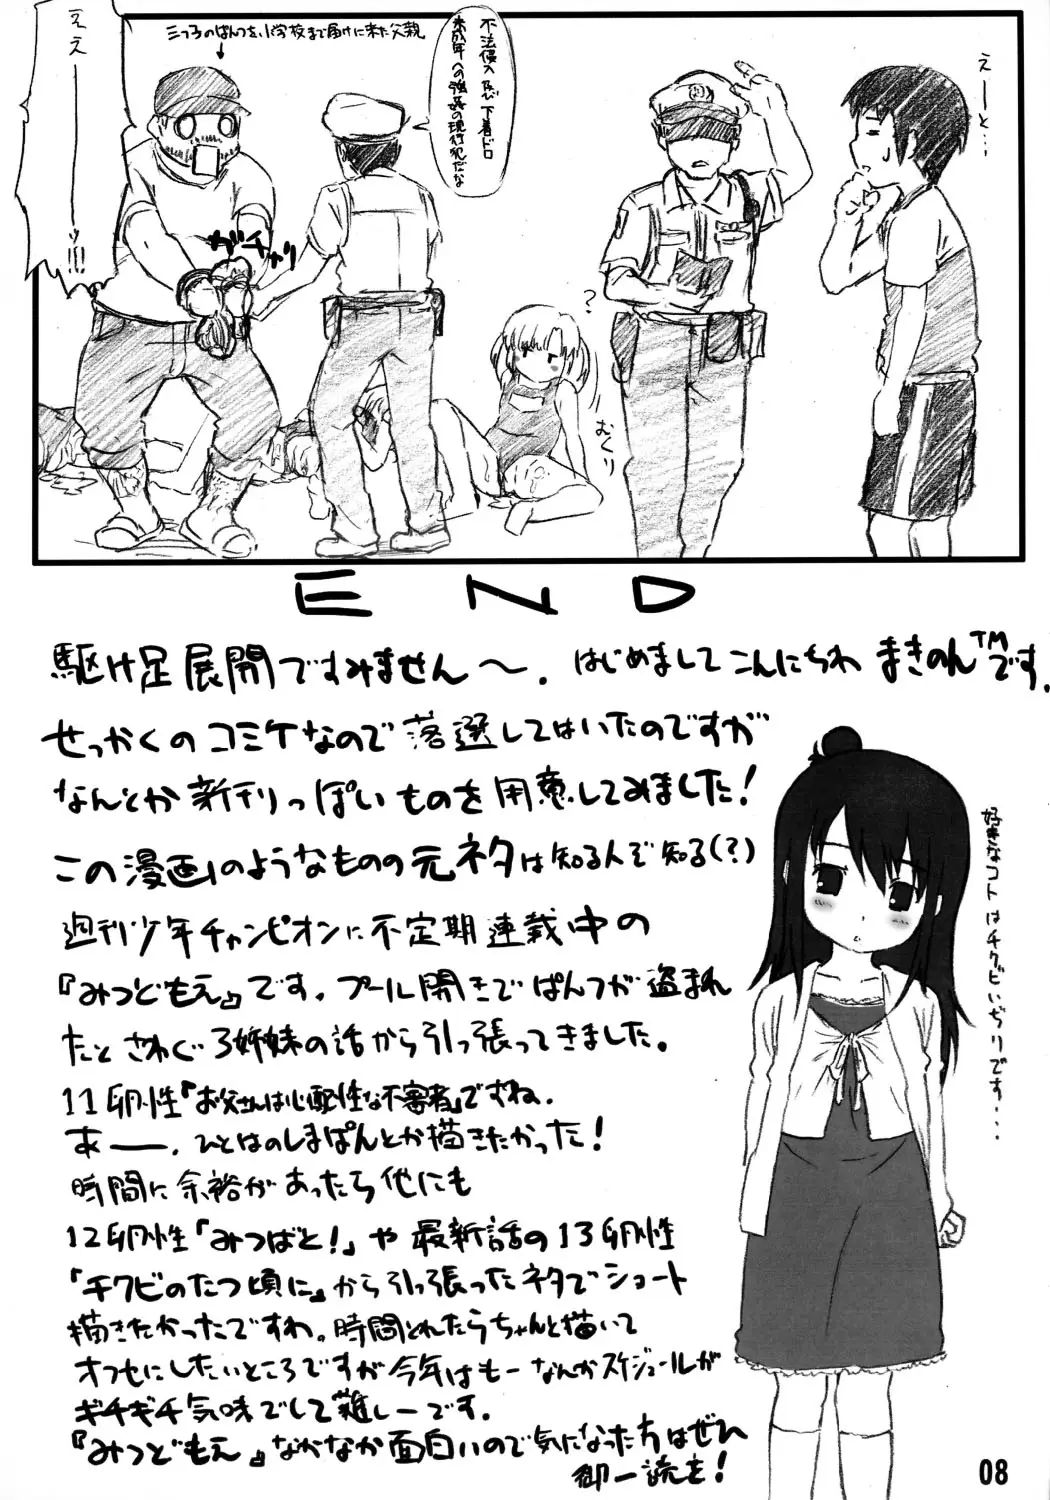 えーと…
不法侵入及び下着ドロ
未成年への強姦の現行犯だな
三つ子のぱんつを小学校まで届けに来た父親
↓
ええーーーッ!!!
ガチャリ
?
むくり
END
駆け足展開ですみません〜. はじめましてこんにちわ まきのん™です.
せっかくのコミケなので落選してはいたのですが
なんとか新刊っぽいものを用意してみました!
この漫画のようなものの元ネタは知る人ぞ知る(?)
週刊少年チャンピオンに不定期連載中の
『みつどもえ』です. プール開きでぱんつが盗まれ
たとさわぐ3姉妹の話から引っ張ってきました。
11卵性『お父さんは心配性な不審者』ですね.
あーー. ひとはのしまぱんとか描きたかった!
時間に余裕があったら他にも
12卵性『みつばと!』や最新話の13卵性
『チクビのたつ頃に』から引っ張ったネタでショート
描きたかったですね。時間とれたらちゃんと描いて
オフセにしたいところですが今年はもーなんかスケジュールが
ギチギチ気味でして難しーです.
『みつどもえ』なかなか面白いので気になった方はぜひ
御一読を!
好きなコトはチクビいぢりです…
08